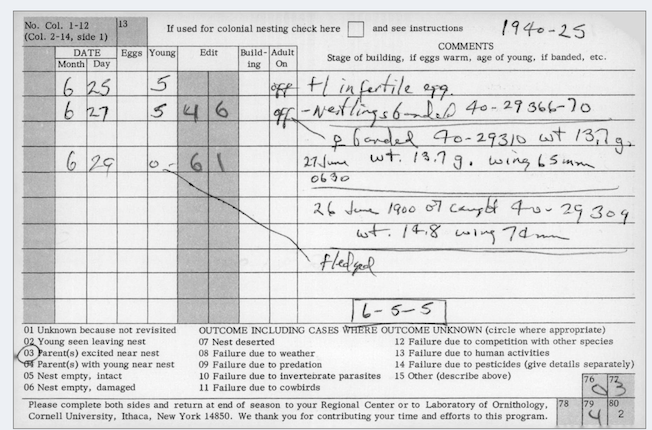 No. Col. 1-12
(Col. 2-14, side 1)
13
If used for colonial nesting check here and see instructions
1940-25
DATE
Month Day
Eggs
Young
Edit
Build-
ing
Adult
On
COMMENTS
Stage of building, if eggs warm, age of young, if banded, etc.
6 25 5 off +1 infertile egg.
6 27 5 46 off - Nestlings banded 40-29366-70
♀ banded 40-29310 wt 13.7 g.
6 29 0- 61 27 June wt. 13.7 g. wing 65mm
0630
26 June 1900 ♂ caught 40-29309
wt. 14.8 wing 7 mm
fledged
6-5-5
01 Unknown because not revisited
02 Young seen leaving nest
03 Parent(s) excited near nest
04 Parent(s) with young near nest
05 Nest empty, intact
06 Nest empty, damaged
OUTCOME INCLUDING CASES WHERE OUTCOME UNKNOWN (circle where appropriate)
07 Nest deserted
08 Failure due to weather
09 Failure due to predation
10 Failure due to invertebrate parasites
11 Failure due to cowbirds
12 Failure due to competition with other species
13 Failure due to human activities
14 Failure due to pesticides (give details separately)
15 Other (describe above)
76 77
0 3
Please complete both sides and return at end of season to your Regional Center or to Laboratory of Ornithology,
Cornell University, Ithaca, New York 14850. We thank you for contributing your time and efforts to this program.
78 79 80
4 2